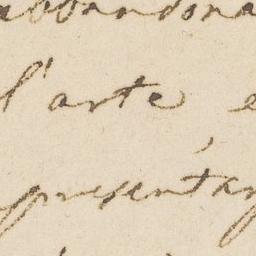 abbandona
l'arte, e
presentar